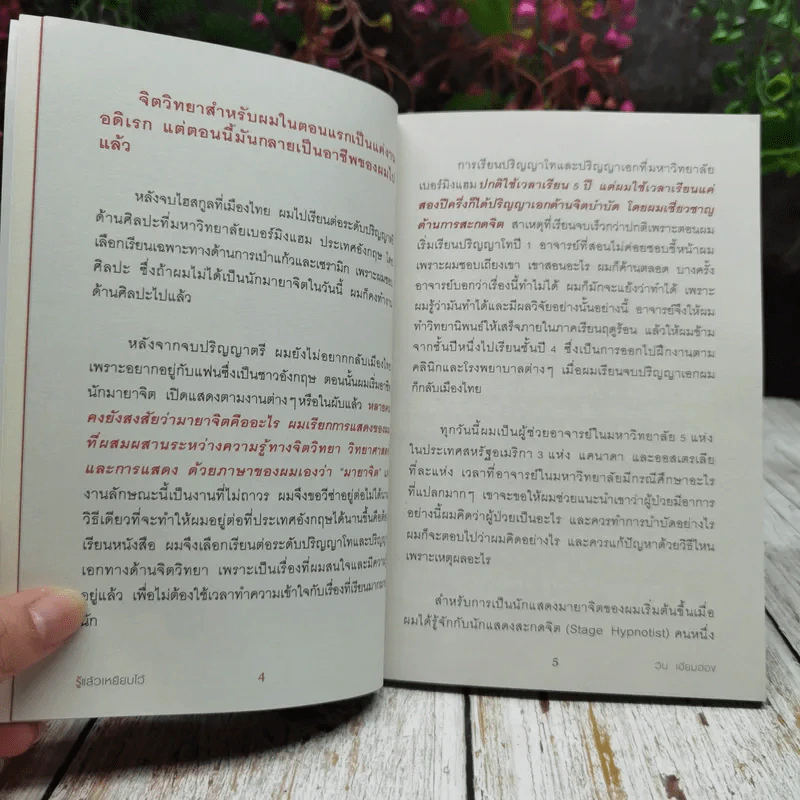 จิตวิทยาสำหรับผมในตอนแรกเป็นแค่งาน
อดิเรก แต่ตอนนี้มันกลายเป็นอาชีพของผมไป
แล้ว
หลังจบไฮสกูลที่เมืองไทย ผมไปเรียนต่อระดับปริญญาตรี
ด้านศิลปะที่มหาวิทยาลัยเบอร์มิงแฮม ประเทศอังกฤษ
เลือกเรียนเฉพาะทางด้านการเป่าแก้วและเซรามิก เพราะผมชอบ
ศิลปะ ซึ่งถ้าผมไม่ได้เป็นนักมายาจิตในวันนี้ ผมก็คงทำงาน
ด้านศิลปะไปแล้ว
หลังจากจบปริญญาตรี ผมยังไม่อยากกลับเมืองไทย
เพราะอยากอยู่กับแฟนซึ่งเป็นชาวอังกฤษ ตอนนั้นผมเริ่มอาชีพ
นักมายาจิต เปิดแสดงตามงานต่างๆหรือในผับแล้ว หลายคน
คงยังสงสัยว่ามายาจิตคืออะไร ผมเรียกการแสดงของผม
ที่ผสมผสานระหว่างความรู้ทางจิตวิทยา วิทยาศาสตร์
และการแสดง ด้วยภาษาของผมเองว่า "มายาจิต"
งานลักษณะนี้เป็นงานที่ไม่ถาวร ผมจึงขอวีซ่าอยู่ต่อไม่ได้
วิธีเดียวที่จะทำให้ผมอยู่ต่อที่ประเทศอังกฤษได้นานขึ้นคือต้อง
เรียนหนังสือ ผมจึงเลือกเรียนต่อระดับปริญญาโทและปริญญา
เอกทางด้านจิตวิทยา เพราะเป็นเรื่องที่ผมสนใจและมีความรู้
อยู่แล้ว เพื่อไม่ต้องใช้เวลาทำความเข้าใจกับเรื่องที่เรียนมาก
นัก
รู้แล้วเหยียบไว้
4
การเรียนปริญญาโทและปริญญาเอกที่มหาวิทยาลัย
เบอร์มิงแฮมปกติใช้เวลาเรียน 5 ปี แต่ผมใช้เวลาเรียนแค่
สองปีครึ่งก็ได้ปริญญาเอกด้านจิตบำบัด โดยผมเชี่ยวชาญ
ด้านการสะกดจิต สาเหตุที่เรียนจบเร็วกว่าปกติเพราะตอนผม
เริ่มเรียนปริญญาโทปี 1 อาจารย์ที่สอนไม่ค่อยชอบขี้หน้าผม
เพราะผมชอบเถียงเขา เขาสอนอะไร ผมก็ค้านตลอด บางครั้ง
อาจารย์บอกว่าเรื่องนี้ทำไม่ได้ ผมก็มักจะแย้งว่าทำได้ เพราะ
ผมรู้ว่ามันทำได้และมีผลวิจัยอย่างนั้นอย่างนี้ อาจารย์จึงให้ผม
ทำวิทยานิพนธ์ให้เสร็จภายในภาคเรียนฤดูร้อน แล้วให้ผมข้าม
จากชั้นปีหนึ่งไปเรียนชั้นปี 4 ซึ่งเป็นการออกไปฝึกงานตาม
คลินิกและโรงพยาบาลต่างๆ เมื่อผมเรียนจบปริญญาเอกผม
ก็กลับเมืองไทย
ทุกวันนี้ผมเป็นผู้ช่วยอาจารย์ในมหาวิทยาลัย 5 แห่ง
ในประเทศสหรัฐอเมริกา 3 แห่ง แคนาดา และออสเตรเลีย
ที่ละแห่ง เวลาที่อาจารย์ในมหาวิทยาลัยมีกรณีศึกษาอะไร
ที่แปลกมากๆ เขาจะขอให้ผมช่วยแนะนำเขาว่าผู้ป่วยมีอาการ
อย่างนี้ผมคิดว่าผู้ป่วยเป็นอะไร และควรทำการบำบัดอย่างไร
ผมก็จะตอบไปว่าผมคิดอย่างไร และควรแก้ปัญหาด้วยวิธีไหน
เพราะเหตุผลอะไร
สำหรับการเป็นนักแสดงมายาจิตของผมเริ่มต้นขึ้นเมื่อ
ผมได้รู้จักกับนักแสดงสะกดจิต (Stage Hypnotist) คนหนึ่ง
5
วิน เอียมอ่อง